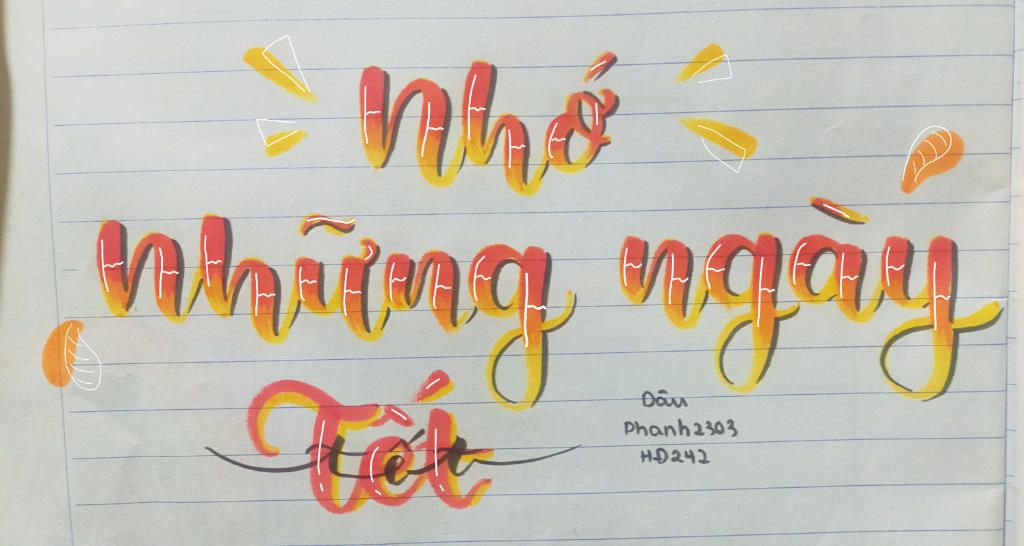 Nhớ
những ngày
Tết
tết
Dâu
Phanh2303
HD242